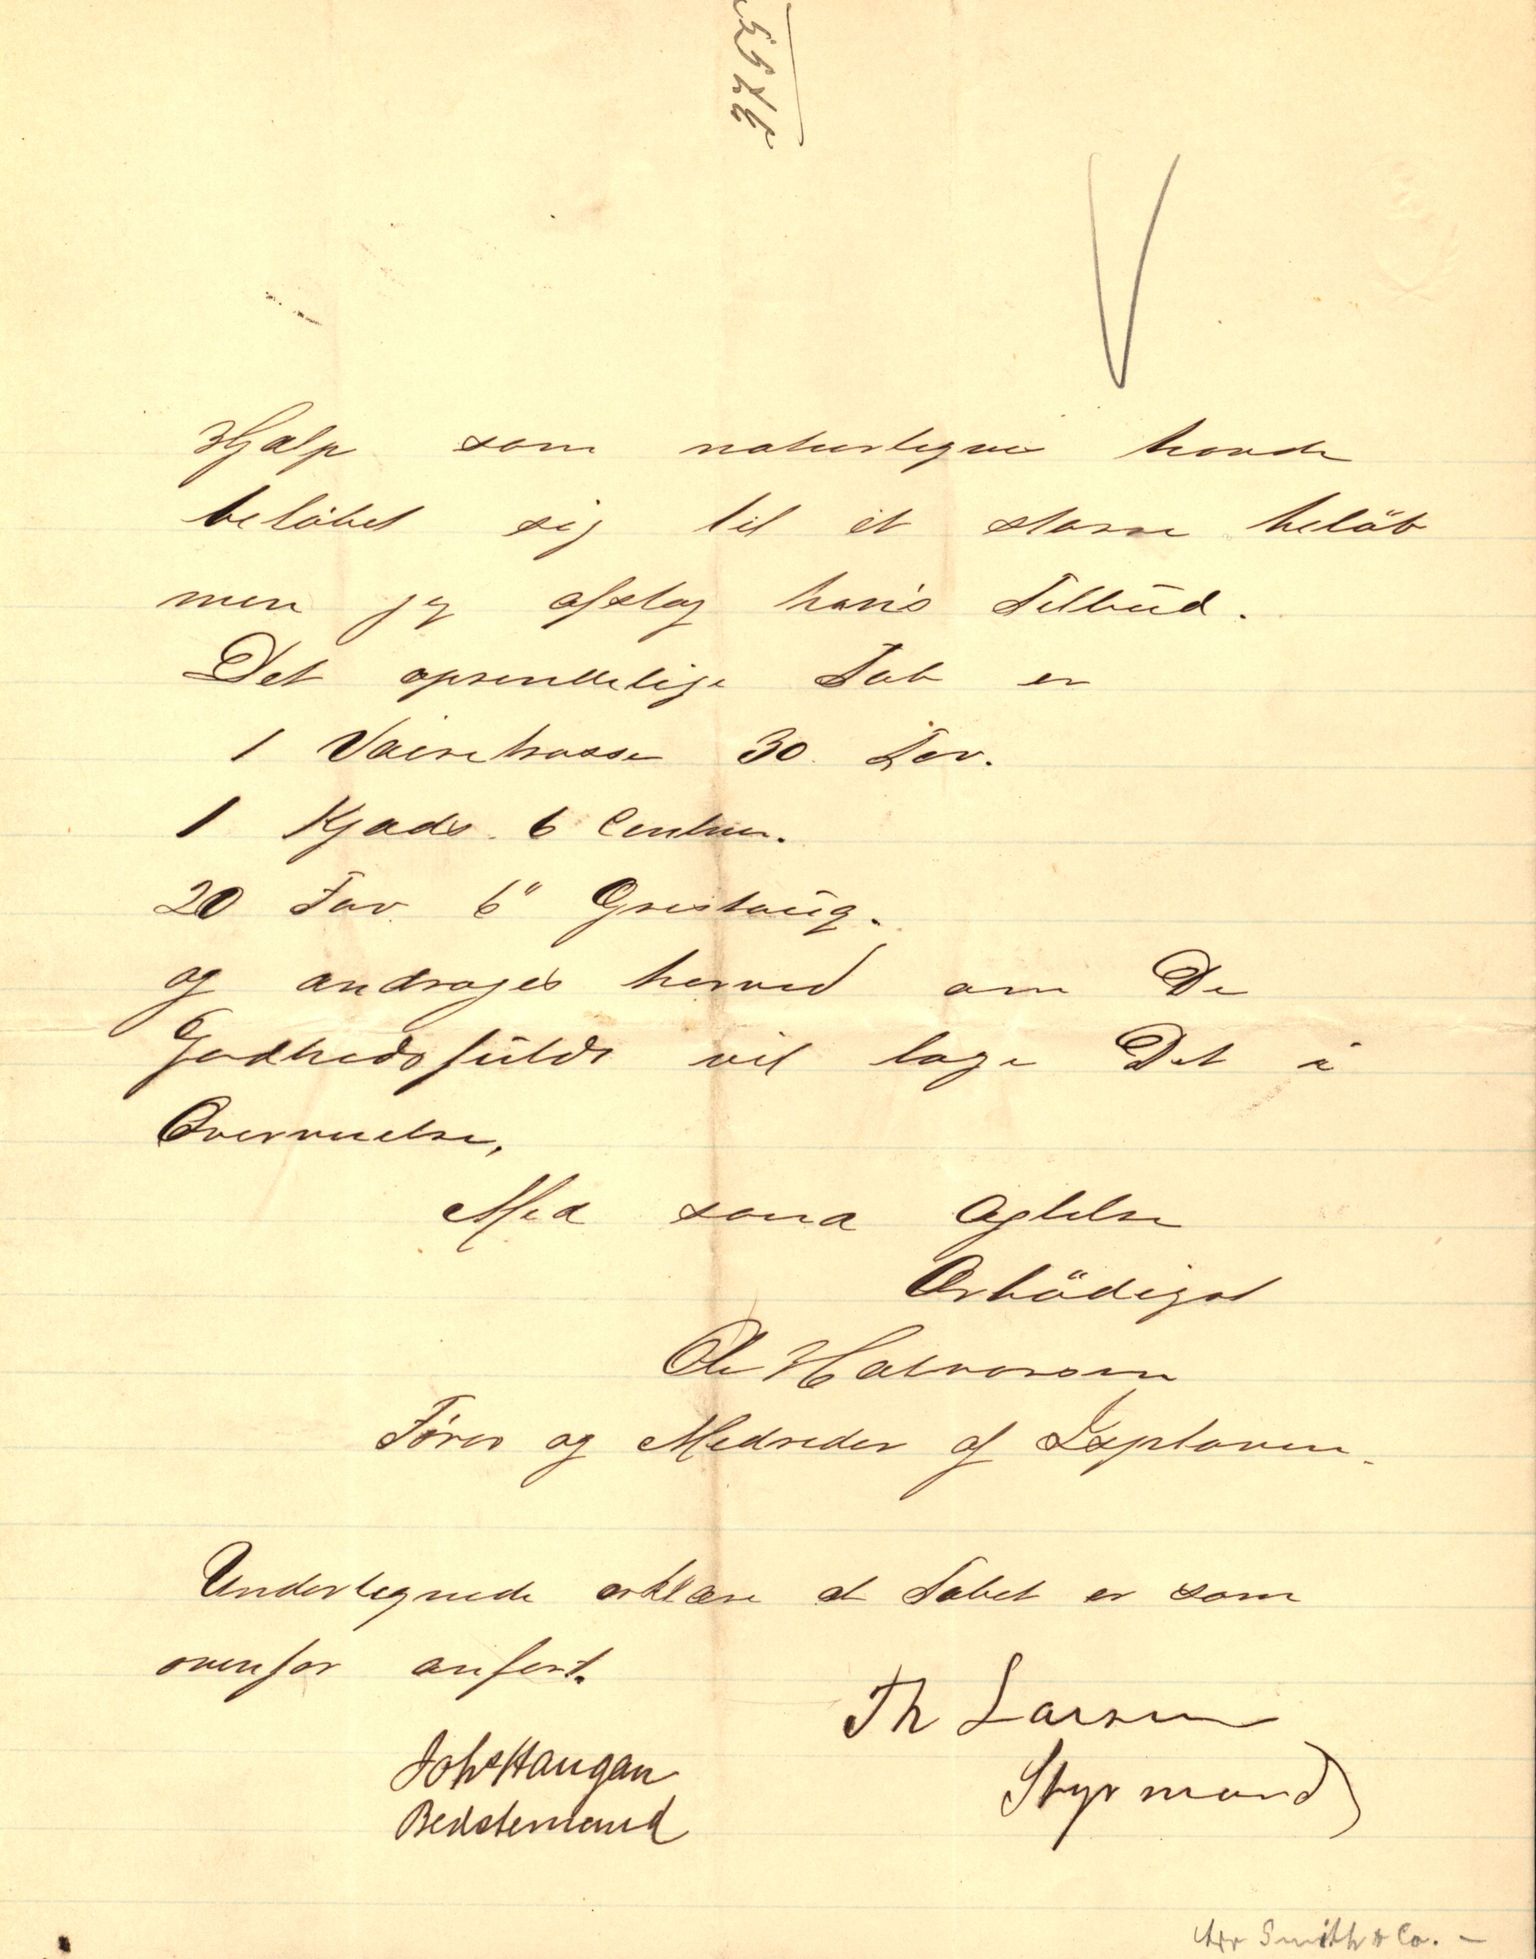 Hjælp som naturligvis havde
beløbet sig til et større beløb
men jeg afslog hans Tilbud.
Det oprendelige Tab er
1 Vairetrosse 30 Fav.
1 Kjæds 6 Centner.
20 Fav 6" Grestoúg.
og andrages herved om De
Godhedsfúldt vil tage Det i
Overveielse,
Med sand Agtelse
Ærbödigst
Ole Halvorsen
Fører og Medreder af Exploren.
Undertegnede erklære at Tabet er som
ovenfor anført.
Th Larsen
Styrmand
Johs Haugan
Bedstemand
Smith & Co. –